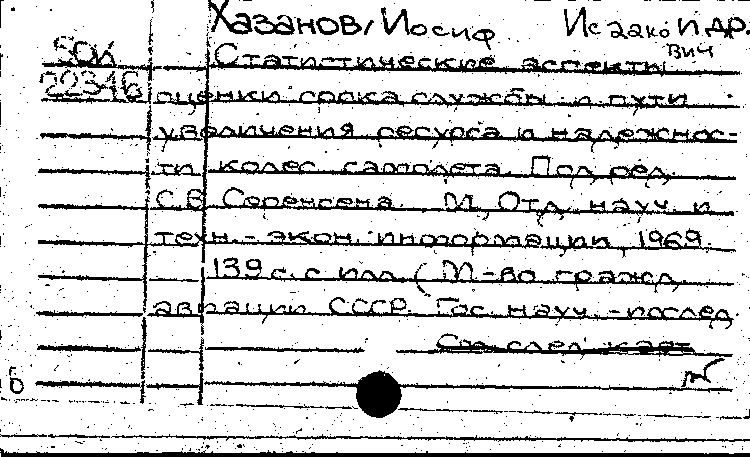 Хазанов, Иосиф Исаакович и др.
Статистические аспекты
22346 оценки срока службы и пути
увеличения ресурса и надежнос-
ти колес самолета. Под ред.
С.В Соренсена. М, Отд. науч. и
техн.-экон. информации, 1969.
139 с. с илл. (М-во гражд
авиации СССР. Гос. науч.-исслед
См след. карт
б